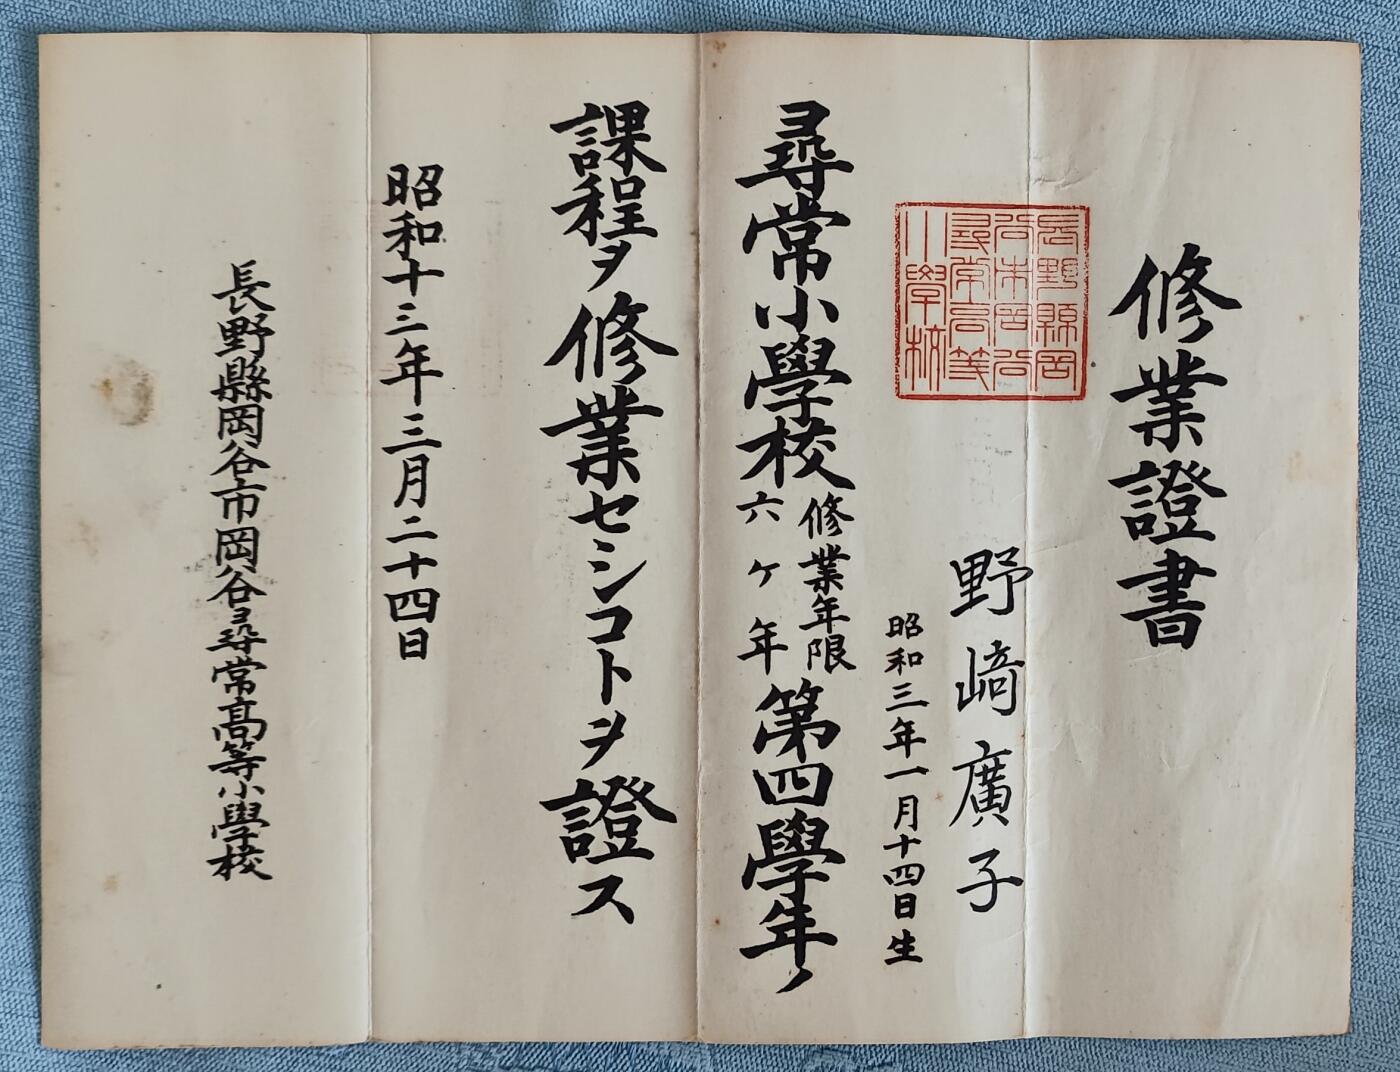 修業證書
野﨑廣子
昭和三年一月十四日生
尋常小學校修業年限六ヶ年第四學年ノ
課程ヲ修業セシコトヲ證ス
昭和十三年三月二十四日
長野縣岡谷市岡谷尋常高等小學校
長野縣岡
谷市岡谷
尋常高等
小學校